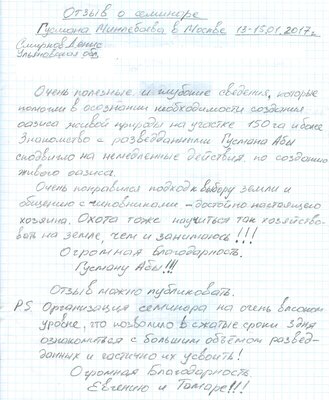 Отзыв о семинаре
Гусмана Миннебаева в Москве 13-15.01.2017г.
Смирнов Денис
Ульяновская обл.
Очень полезные и глубокие сведения, которые
помогли в осознании необходимости создания
оазиса живой природы на участке 150 га и более.
Знакомство с разведданными Гусмана Абы
сподвигло на немедленные действия по созданию
живого оазиса.
Очень понравился подход к выбору земли и
общению с чиновниками – достойно настоящего
хозяина. Охота тоже научиться так хозяйство-
вать на земле, чем и занимаюсь!!!
Огромная Благодарность
Гусману Абы!!!
Отзыв можно публиковать.
P.S. Организация семинара на очень высоком
уровне, что позволило в сжатые сроки 3 дня
ознакомиться с большим объёмом развед-
данных и частично их усвоить!
Огромная Благодарность
Евгению и Тамаре!!!